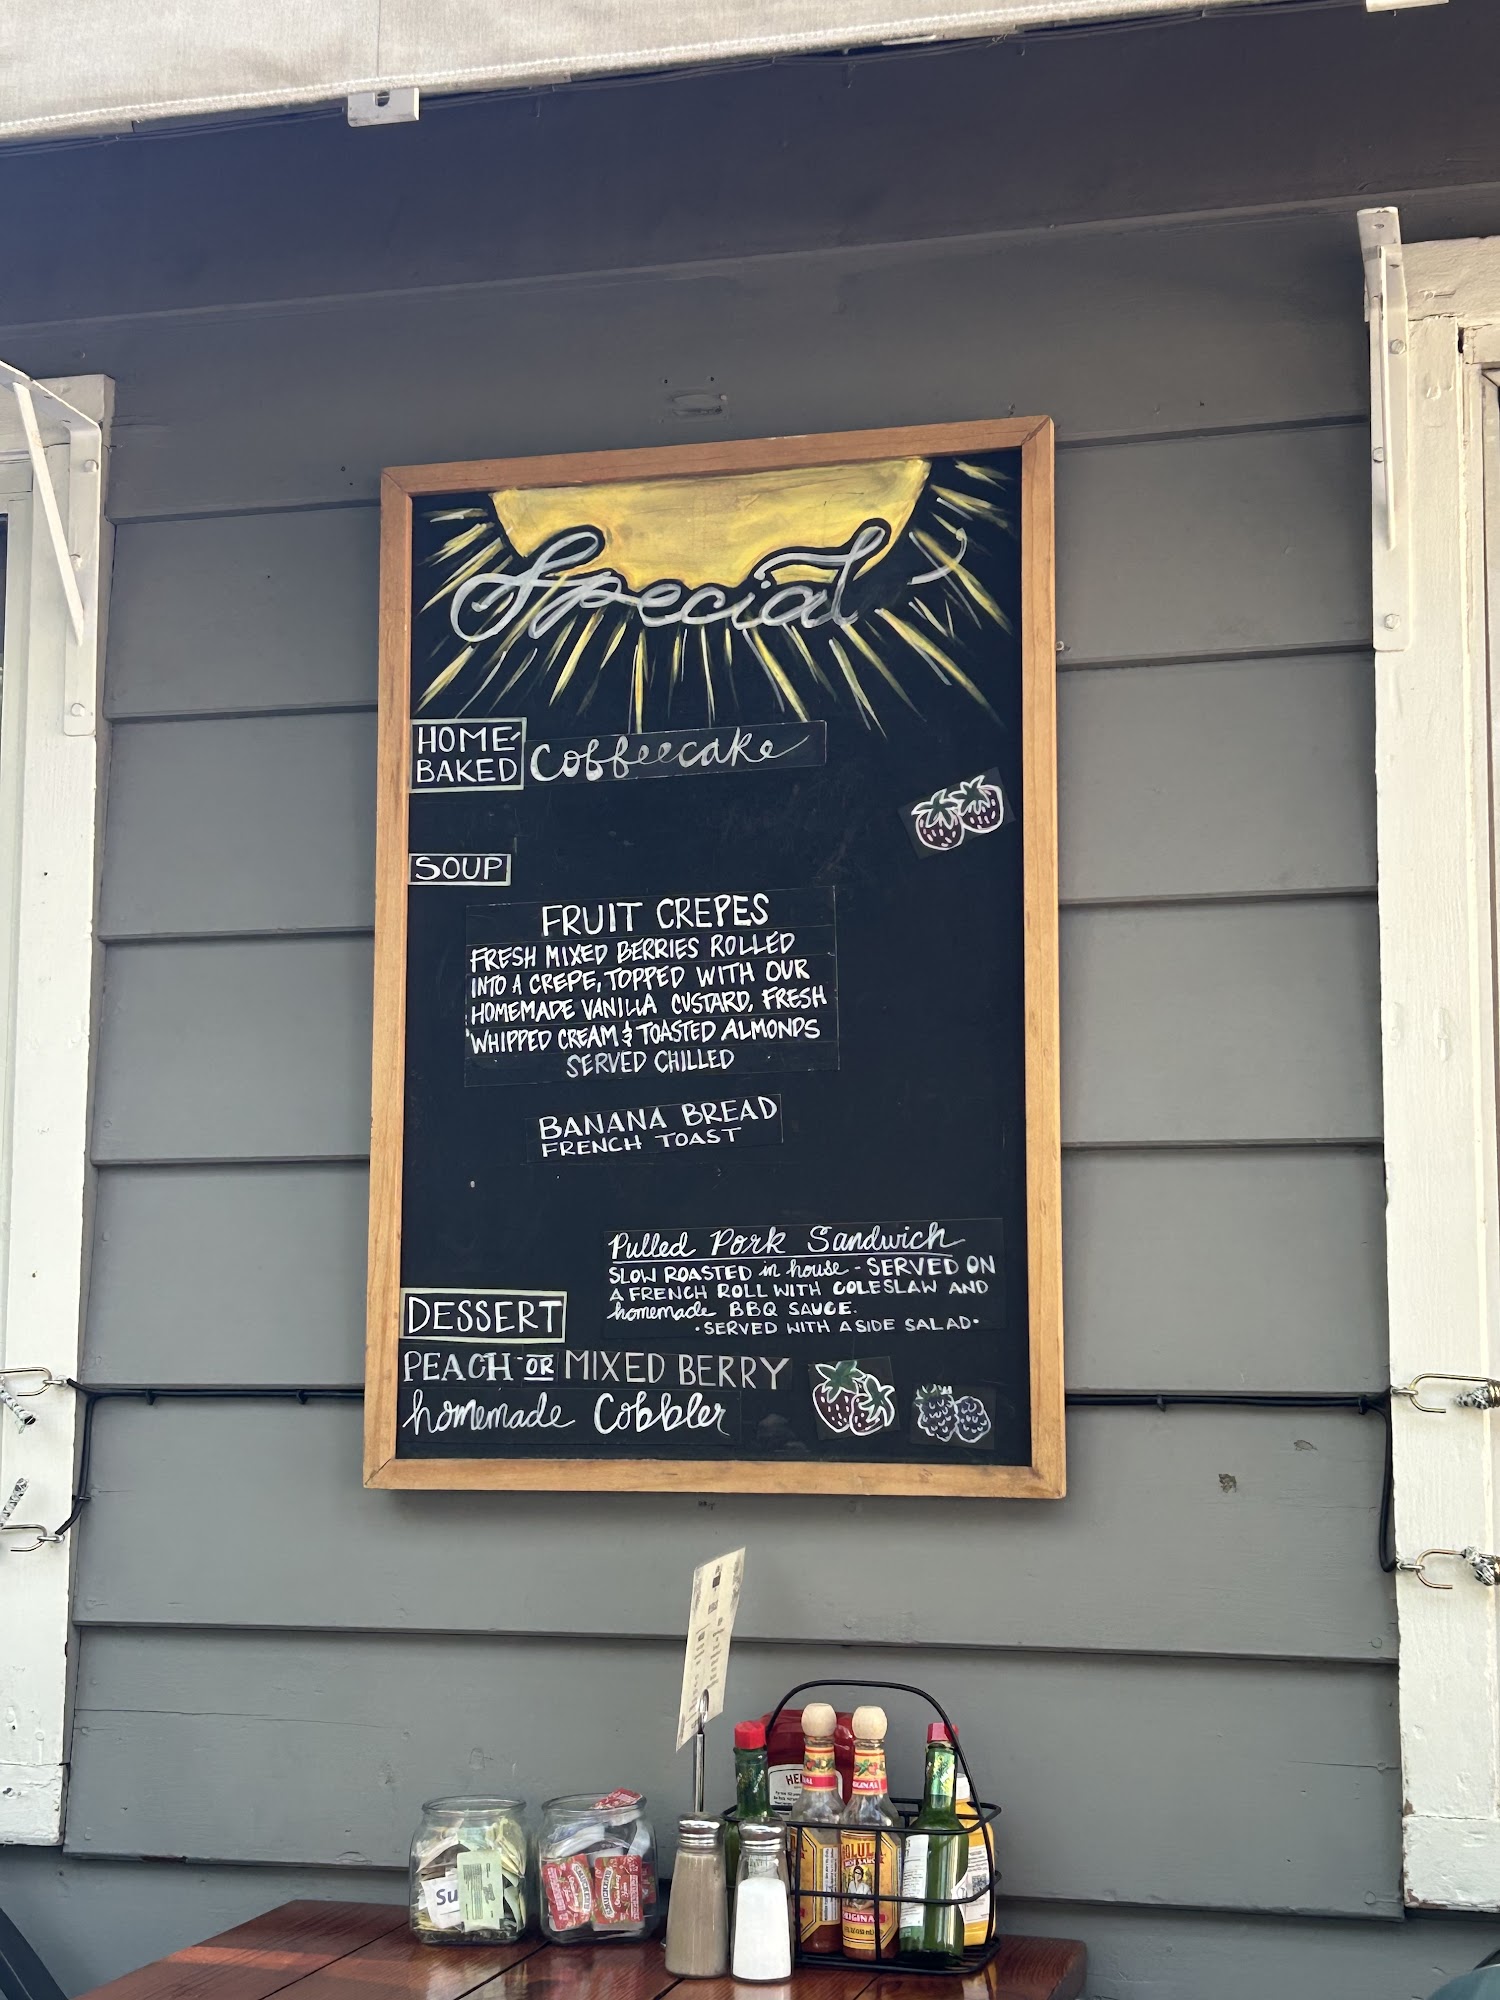 Special
HOME-
BAKED
Coffeecake
SOUP
FRUIT CREPES
FRESH MIXED BERRIES ROLLED
INTO A CREPE, TOPPED WITH OUR
HOMEMADE VANILLA CUSTARD, FRESH
WHIPPED CREAM & TOASTED ALMONDS
SERVED CHILLED
BANANA BREAD
FRENCH TOAST
Pulled Pork Sandwich
SLOW ROASTED in house - SERVED ON
A FRENCH ROLL WITH COLESLAW AND
homemade BBQ SAUCE.
•SERVED WITH A SIDE SALAD•
DESSERT
PEACH -OR MIXED BERRY
homemade Cobbler
HEI
ORIGINAL
Su